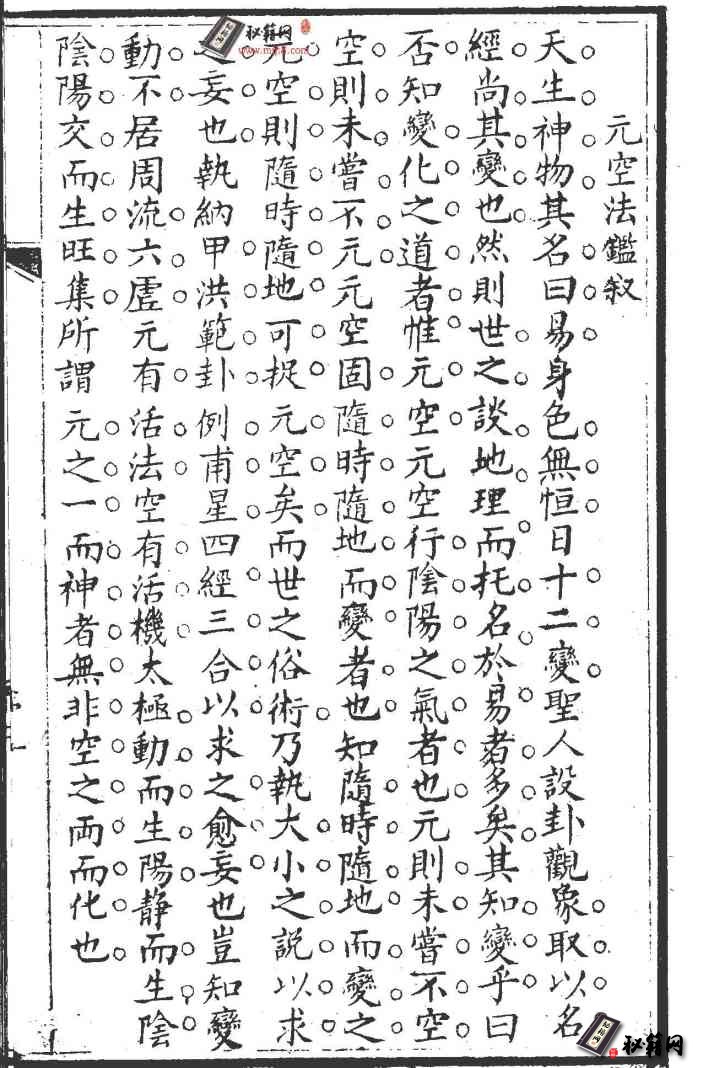 元空法鑑叙
天生神物其名曰易身色無恒日十二變聖人設卦觀象取以名
經尚其變也然則世之談地理而托名於易者多矣其知變乎曰
否知變化之道者惟元空元空行陰陽之氣者也元則未嘗不空
空則未嘗不元元空固隨時隨地而變者也知隨時隨地而變之
元空則隨時隨地可捉元空矣而世之俗術乃執大小之說以求
之妄也執納甲洪範卦例甫星四經三合以求之愈妄也豈知變
動不居周流六虛元有活法空有活機太極動而生陽靜而生陰
陰陽交而生旺集所謂元之一而神者無非空之両而化也
秘籍网
秘籍网